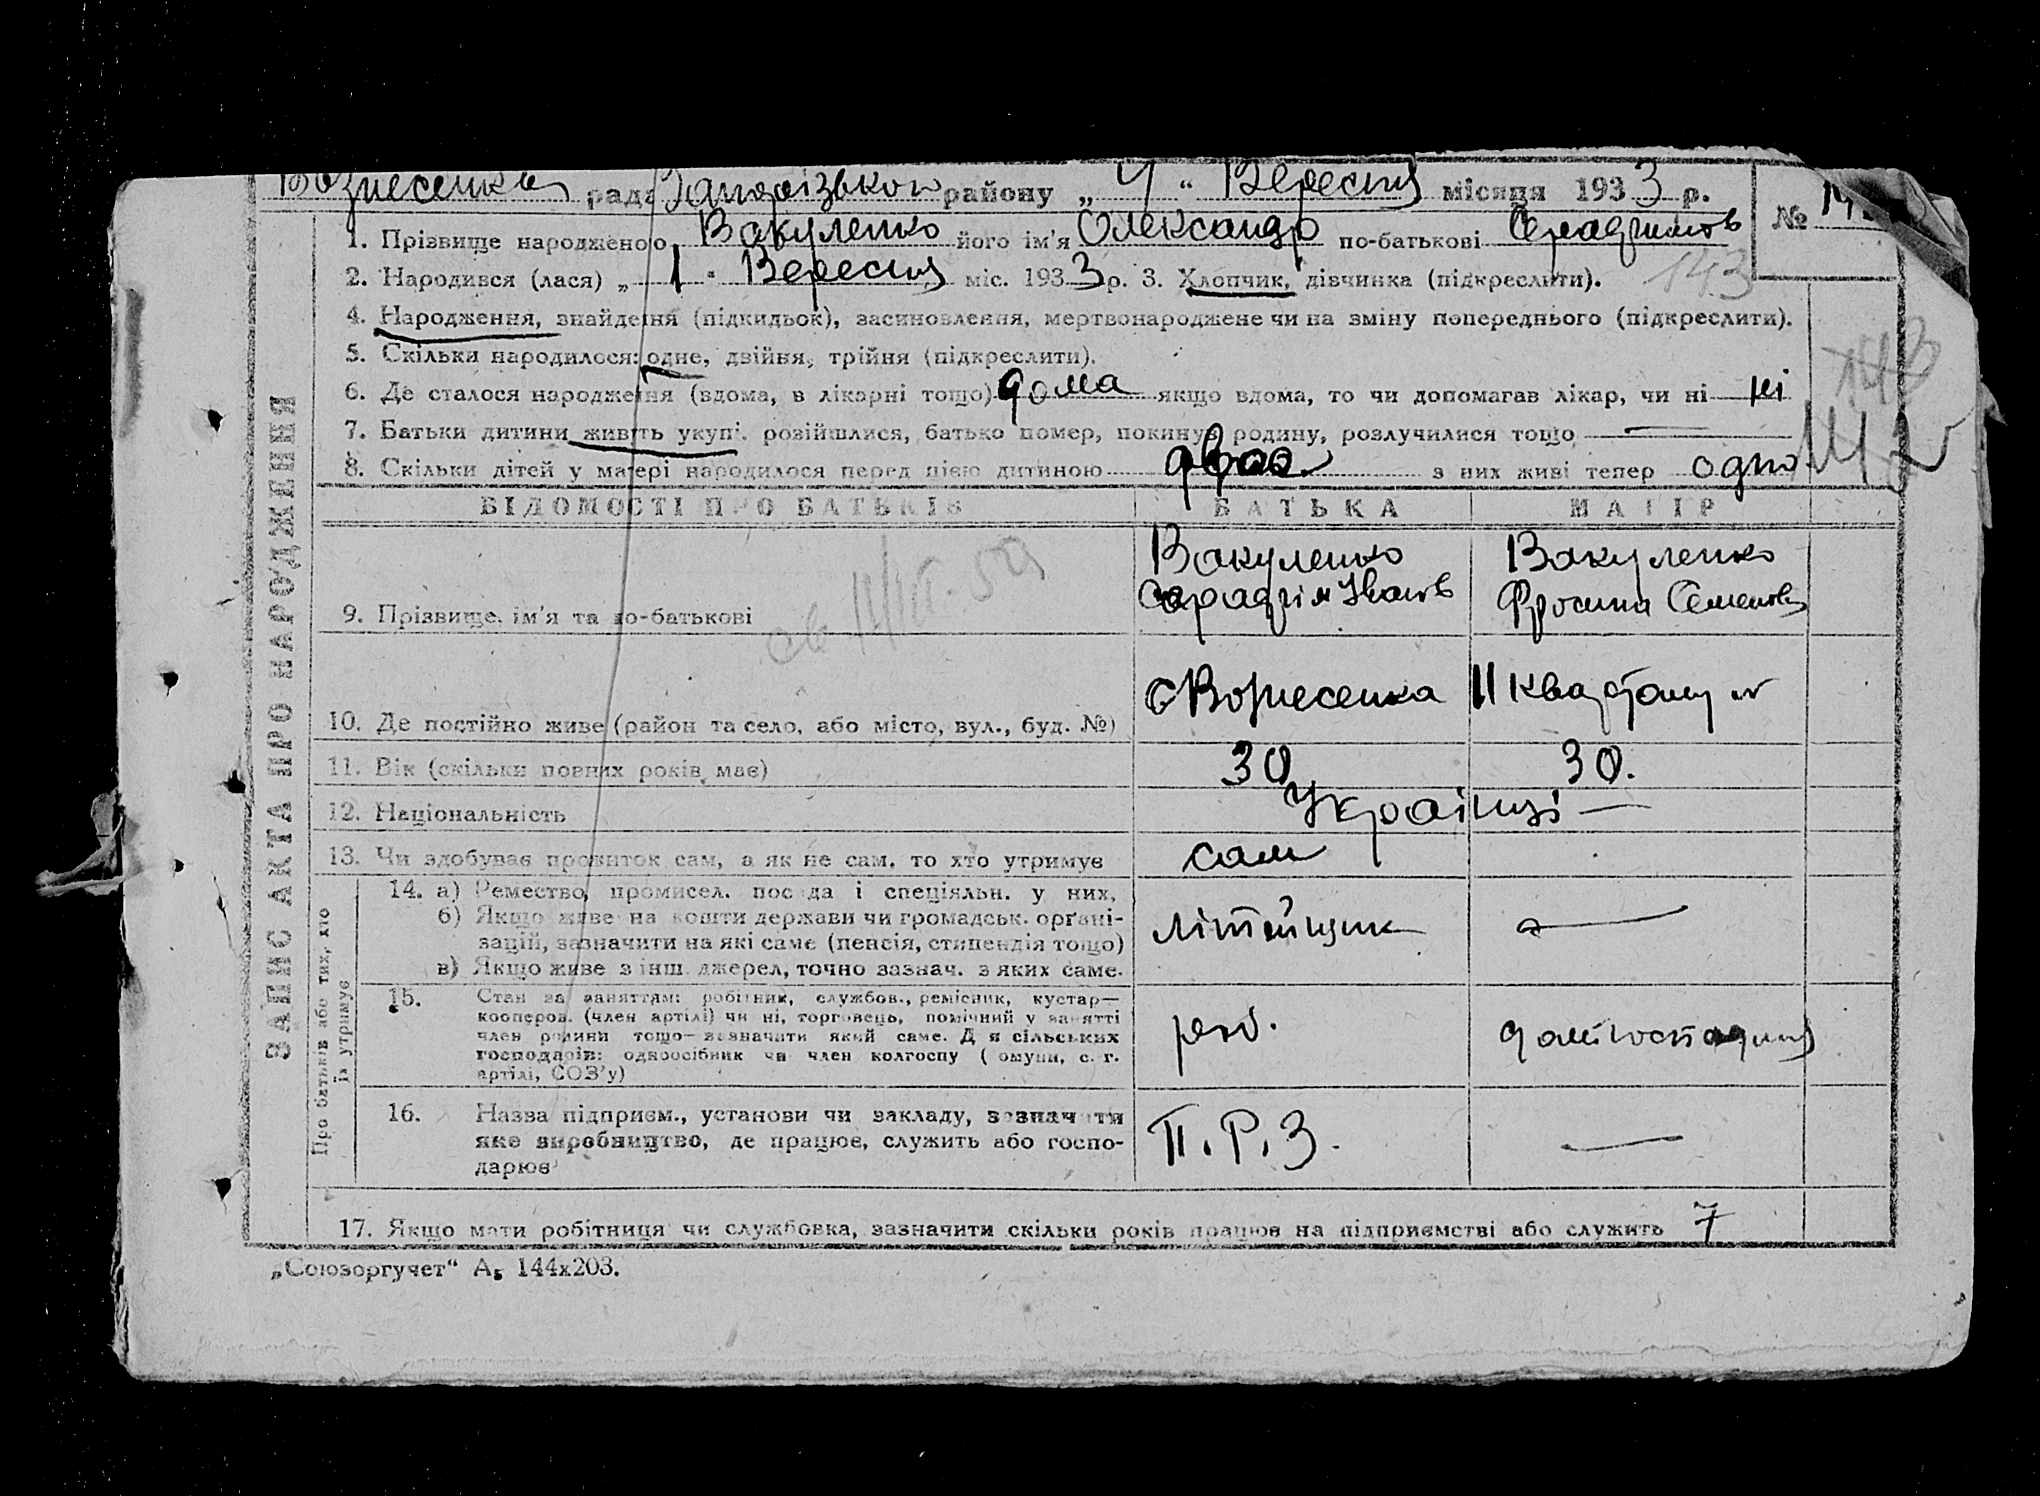 Вознесенка рада Запорізького району „ 4 “ Вересня місяця 1933 р.
№
1. Прізвище народженого Вакуленко його ім'я Олександр по-батькові
2. Народився (лася) „ 1 “ Вересня міс. 1933 р. 3. Хлопчик, дівчинка (підкреслити). 143
4. Народження, знайдення (підкидьок), засиновлення, мертвонароджене чи на зміну попереднього (підкреслити).
5. Скільки народилося: одне, двійня, трійня (підкреслити).
143
6. Де сталося народження (вдома, в лікарні тощо) дома якщо вдома, то чи допомагав лікар, чи ні ні
7. Батьки дитини живуть укупі, розійшлися, батько помер, покинув родину, розлучилися тощо —
8. Скільки дітей у матері народилося перед цією дитиною двоє з них живі тепер одно
ЗАПИС АКТА ПРО НАРОДЖЕННЯ
ВІДОМОСТІ ПРО БАТЬКІВ БАТЬКА МАТІР
9. Прізвище, ім'я та по-батькові
Вакуленко
Іванов
Вакуленко
Фросина Семенов
10. Де постійно живе (район та село, або місто, вул., буд. №) с Вознесенка II квартал №
11. Вік (скільки повних років має) 30 30.
12. Національність Українці —
13. Чи здобуває прожиток сам, а як не сам, то хто утримує сам
Про батьків або тих, хто
їх утримує
14. а) Ремество, промисел, посада і спеціяльн. у них,
б) Якщо живе на кошти держави чи громадськ. органі-
зацій, зазначити на які саме (пенсія, стипендія тощо)
в) Якщо живе з інш. джерел, точно зазнач. з яких саме.
літейщик —
15. Стан за заняттям: робітник, службов., ремісник, кустар—
кооперов. (член артілі) чи ні, торговець, помічний у занятті
член родини тощо—зазначати який саме. Для сільських
господарів: одноосібник чи член колгоспу (комуни, с.-г.
артілі, СОЗ'у)
роб. домгосподиня
16. Назва підприєм., установи чи закладу, зазначити
яке виробництво, де працює, служить або госпо-
дарює
П.Р.З. —
17. Якщо мати робітниця чи службовка, зазначити скільки років працює на підприємстві або служить 7
„Союзоргучет“ А5 144х203.